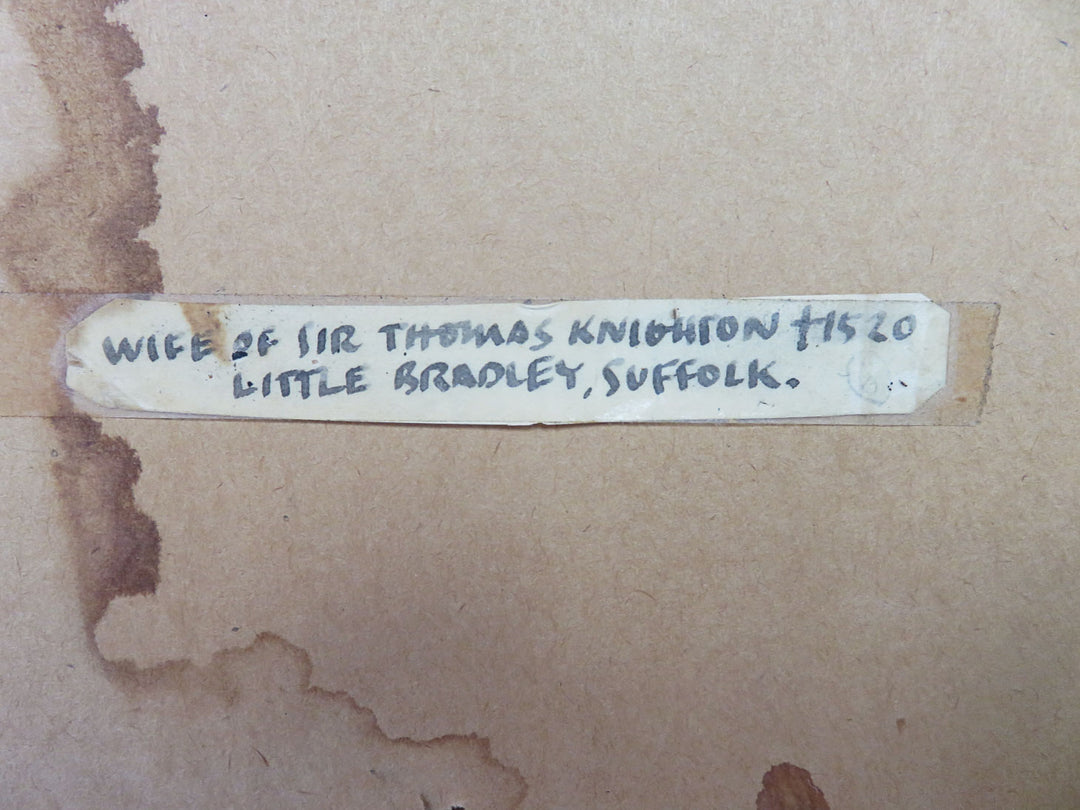 WIFE OF SIR THOMAS KNIGHTON †1520
LITTLE BRADLEY, SUFFOLK.